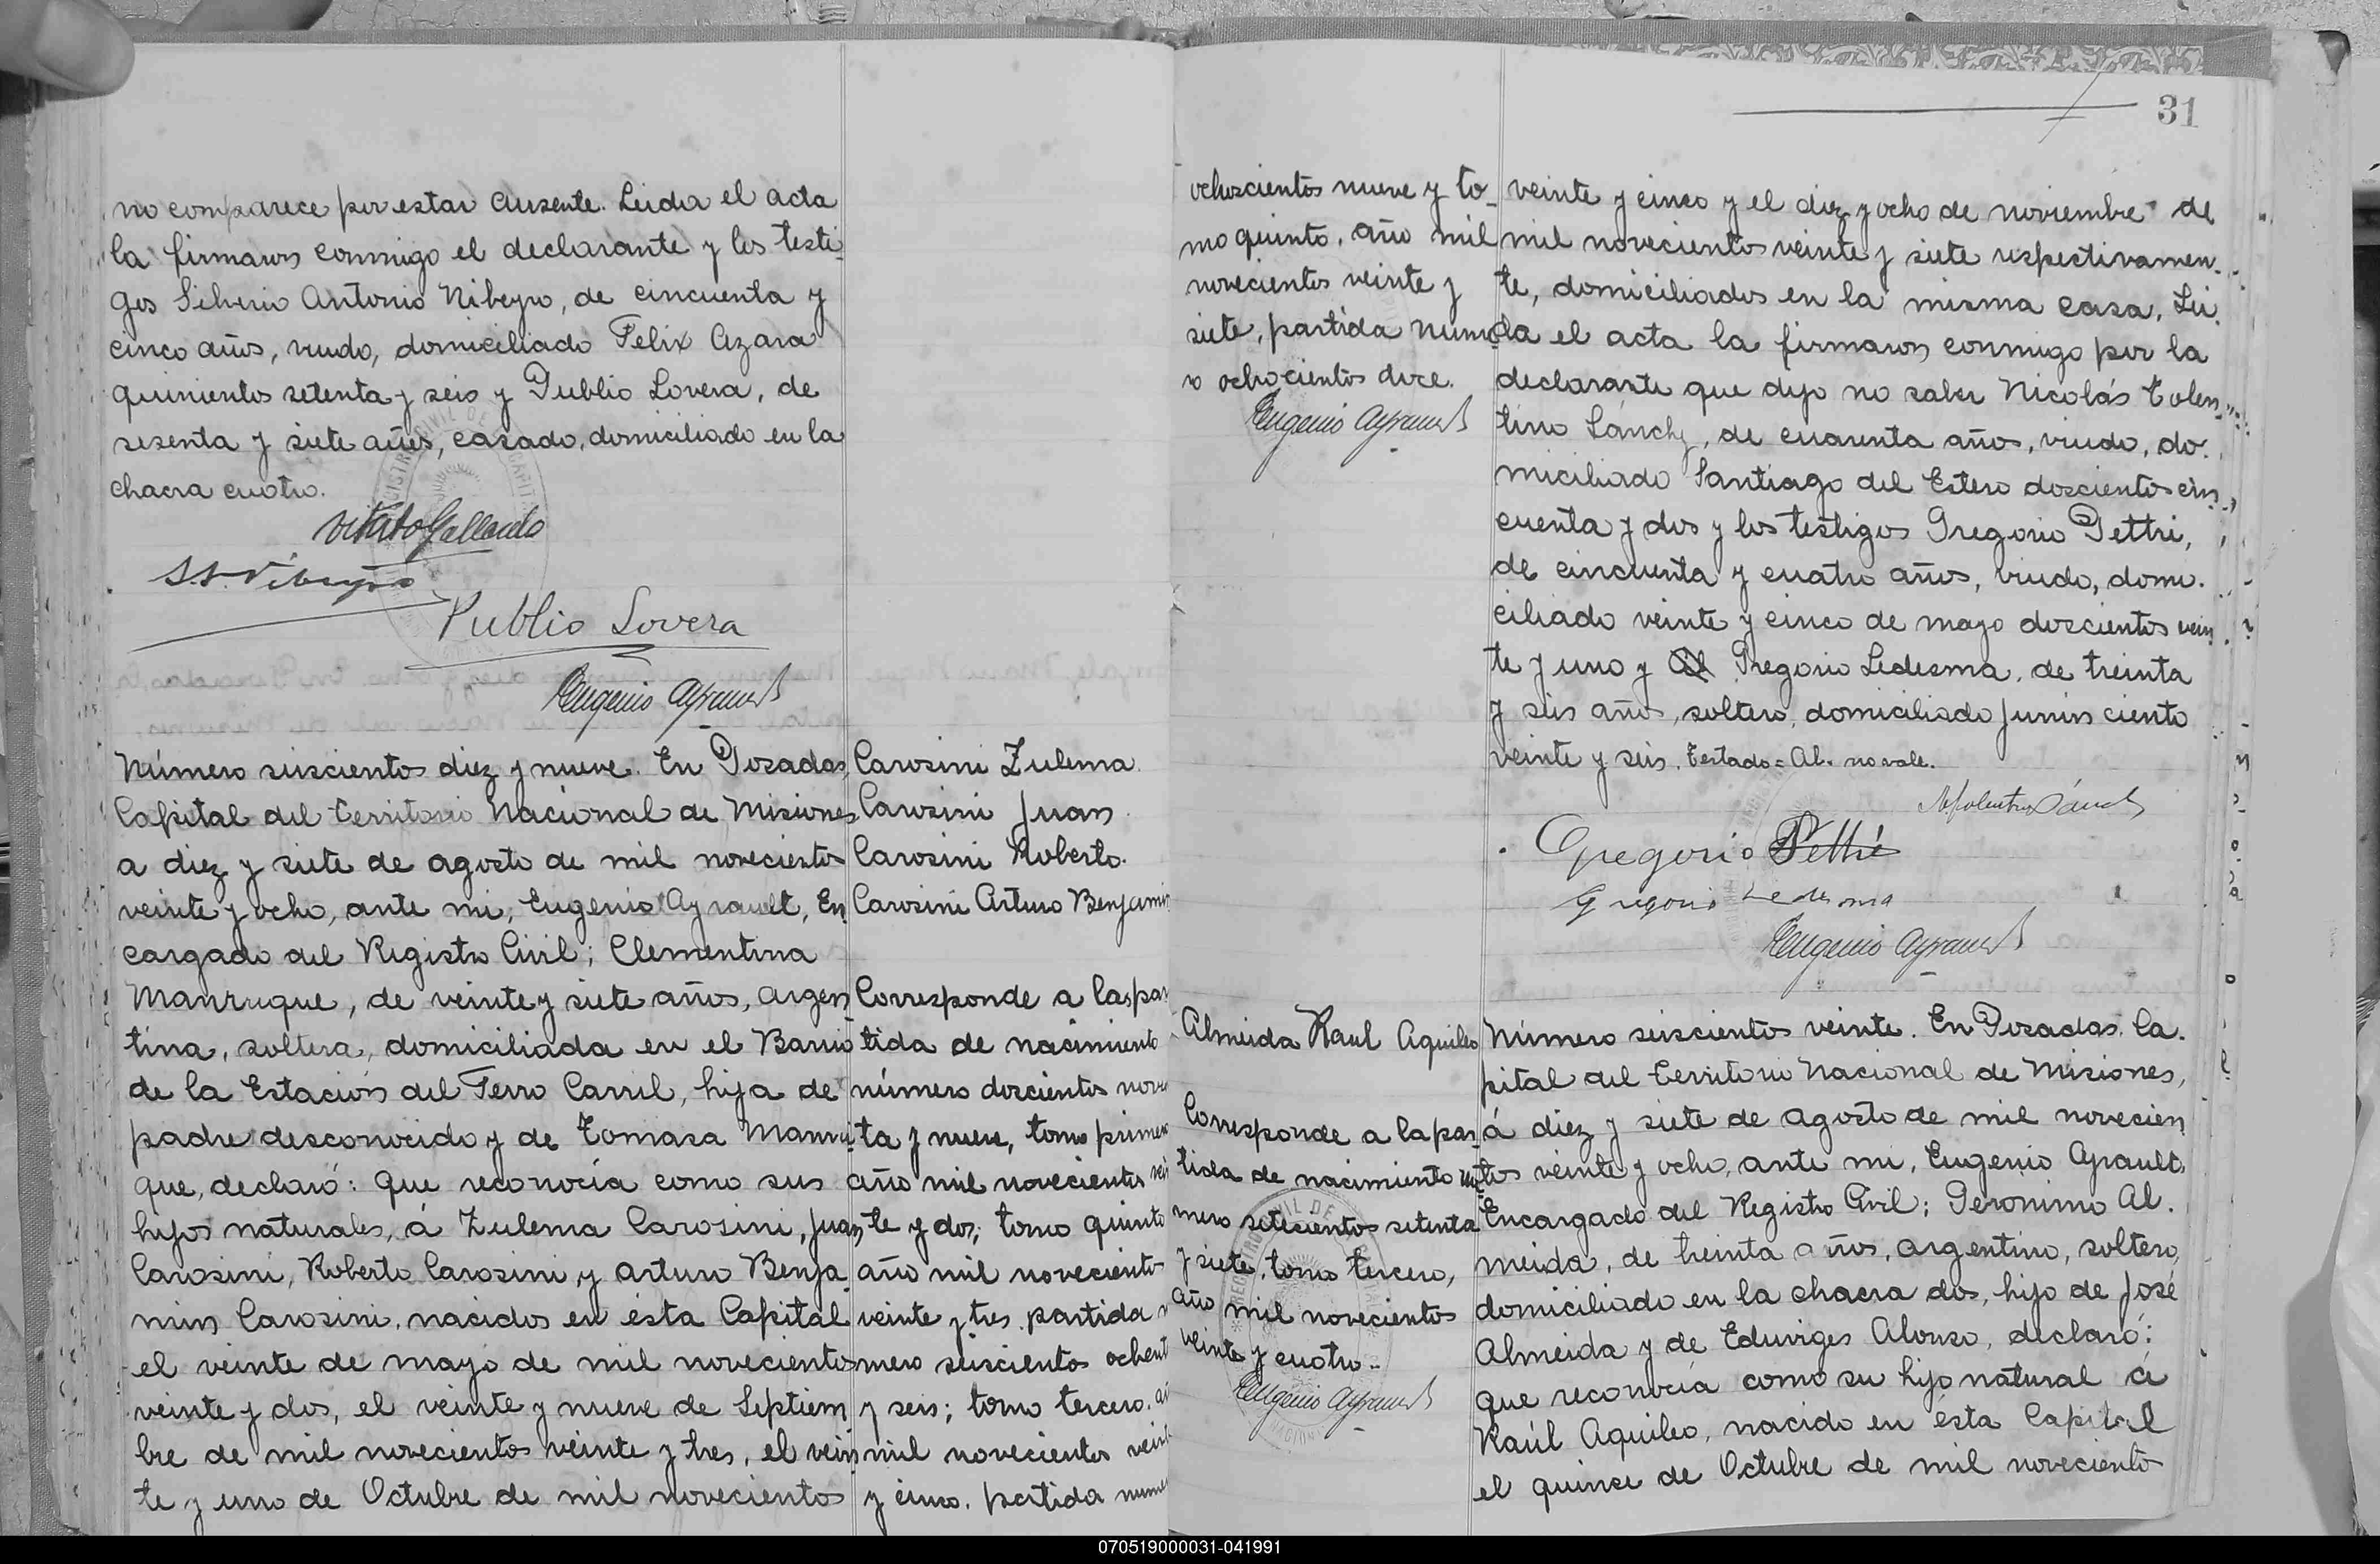 no comparece por estar ausente. Leida el acta
la firmaron conmigo el declarante y los testi
gos Silverio Antonio Nibeyro, de cincuenta y
cinco años, viudo, domiciliado Felix Azara
quinientos setenta y seis y Publio Lovera, de
sesenta y siete años, casado, domiciliado en la
chacra cuatro.
Vitato Gallardo
Publio Lovera
Eugenio Ayrault
Número seiscientos diez y nueve. En Posadas,
Capital del Territorio Nacional de Misiones
a diez y siete de agosto de mil novecientos
veinte y ocho, ante mi, Eugenio Ayrault, En
cargado del Registro Civil; Clementina
Manruque, de veinte y siete años, argen
tina, soltera, domiciliada en el Barrio
de la Estación del Ferro Carril, hija de
padre desconocido y de Tomasa Manru
que, declaró: Que reconocía como sus
hijos naturales, á Zulema Carosini, Juan
Carosini, Roberto Carosini y Arturo Benja
min Carosini, nacidos en esta Capital
el veinte de mayo de mil novecientos
veinte y dos, el veinte y nueve de Septiem
bre de mil novecientos veinte y tres, el vein
te y uno de Octubre de mil novecientos
Carosini Zulema.
Carosini Juan
Carosini Roberto.
Carosini Arturo Benjamin
Corresponde a las par
tida de nacimiento
número doscientos noven
ta y nueve, tomo primero
año mil novecientos vein
te y dos; tomo quinto
año mil novecientos
veinte y tres partida n
mero seiscientos ochent
y seis; tomo tercero. añ
mil novecientos veint
y cinco. partida nume
31
ochoscientos nueve y to_
mo quinto, año mil
novecientos veinte y
siete, partida nume
ro ochocientos doce.
Eugenio Ayrault
veinte y cinco y el diez y ocho de noviembre de
mil novecientos veinte y siete respectivamen_
te, domiciliados en la misma casa. Lei
da el acta la firmaron conmigo por la
declarante que dijo no saber Nicolás Tolen_
tino Sánchz, de cuarenta años, viudo, do.
miciliado Santiago del Estero doscientos cin_
cuenta y dos y los testigos Gregorio Pettri,
de cincuenta y cuatro años, viudo, domi.
ciliado veinte y cinco de mayo doscientos vein
te y uno y Al Gregorio Ledesma, de treinta
y seis años, soltero, domiciliado Junin ciento
veinte y seis. Testado = Al. no vale.
N. Tolentino Sánch
Gregorio Pettri
Gregorio Ledesma
Eugenio Ayrault
Almeida Raul Aquileo
Corresponde a la par_
tida de nacimiento nú
mero setecientos setenta
y siete, tomo tercero,
año mil novecientos
veinte y cuatro..
Eugenio Ayrault
Número seiscientos veinte. En Posadas. Ca.
pital del Territorio Nacional de Misiones,
á diez y siete de agosto de mil novecien
tos veinte y ocho, ante mi, Eugenio Ayrault,
Encargado del Registro Civil; Geronimo Al.
meida, de treinta años, argentino, soltero,
domiciliado en la chacra dos, hijo de José
Almeida y de Eduviges Alonso, declaró:
que reconocía como su hijo natural á
Raúl Aquileo, nacido en ésta Capital
el quince de Octubre de mil noveciento
070519000031-041991